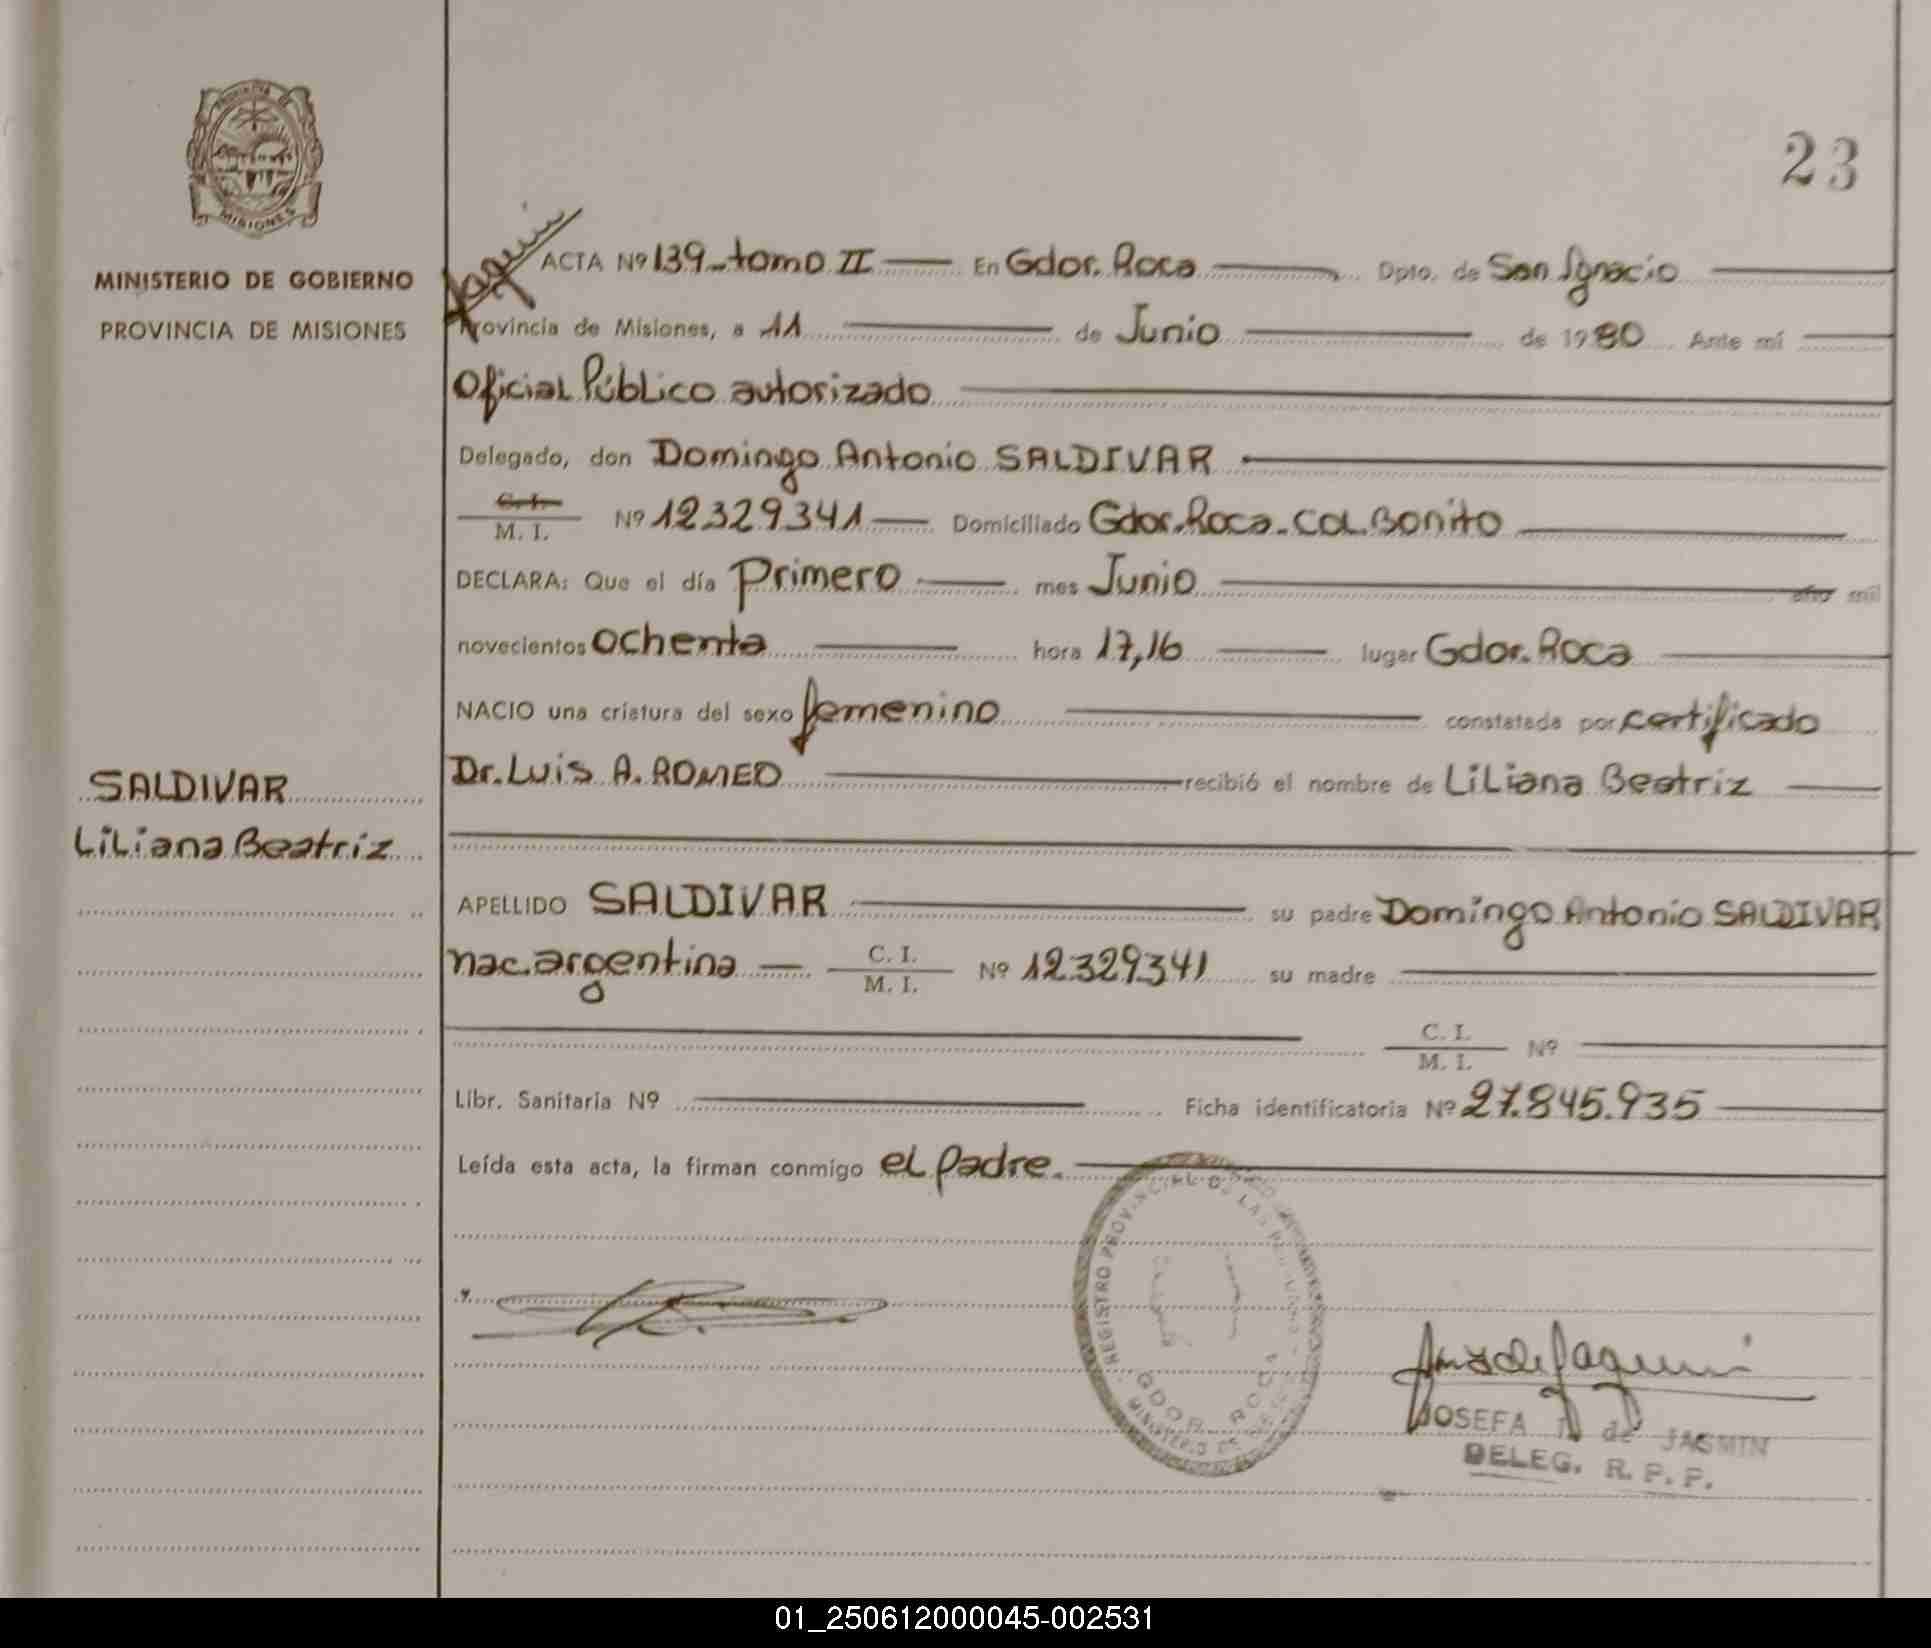 PROVINCIA DE
MISIONES
MINISTERIO DE GOBIERNO
PROVINCIA DE MISIONES
23
ACTA Nº 139 - tomo II — En Gdor. Roca — Dpto. de San Ignacio
Provincia de Misiones, a 11 de Junio de 1980 Ante mí
Oficial Público autorizado
Delegado, don Domingo Antonio SALDIVAR
C. I.
M. I. Nº 12329341 — Domiciliado Gdor. Roca - COL. Bonito
DECLARA: Que el día Primero mes Junio año mil
novecientos ochenta hora 17,16 lugar Gdor. Roca
NACIO una criatura del sexo femenino constatada por certificado
Dr. Luis A. ROMEO recibió el nombre de Liliana Beatriz
SALDIVAR
Liliana Beatriz
APELLIDO SALDIVAR su padre Domingo Antonio SALDIVAR
nac. argentina — C. I. M. I. Nº 12329341 su madre
C. I. M. I. Nº
Libr. Sanitaria Nº Ficha identificatoria Nº 27.845.935
Leída esta acta, la firman conmigo el padre.
REGISTRO PROVINCIAL DE LAS
GDOR. ROCA
MINISTERIO DE
JOSEFA de JASMIN
DELEG. R. P. P.
01_250612000045-002531